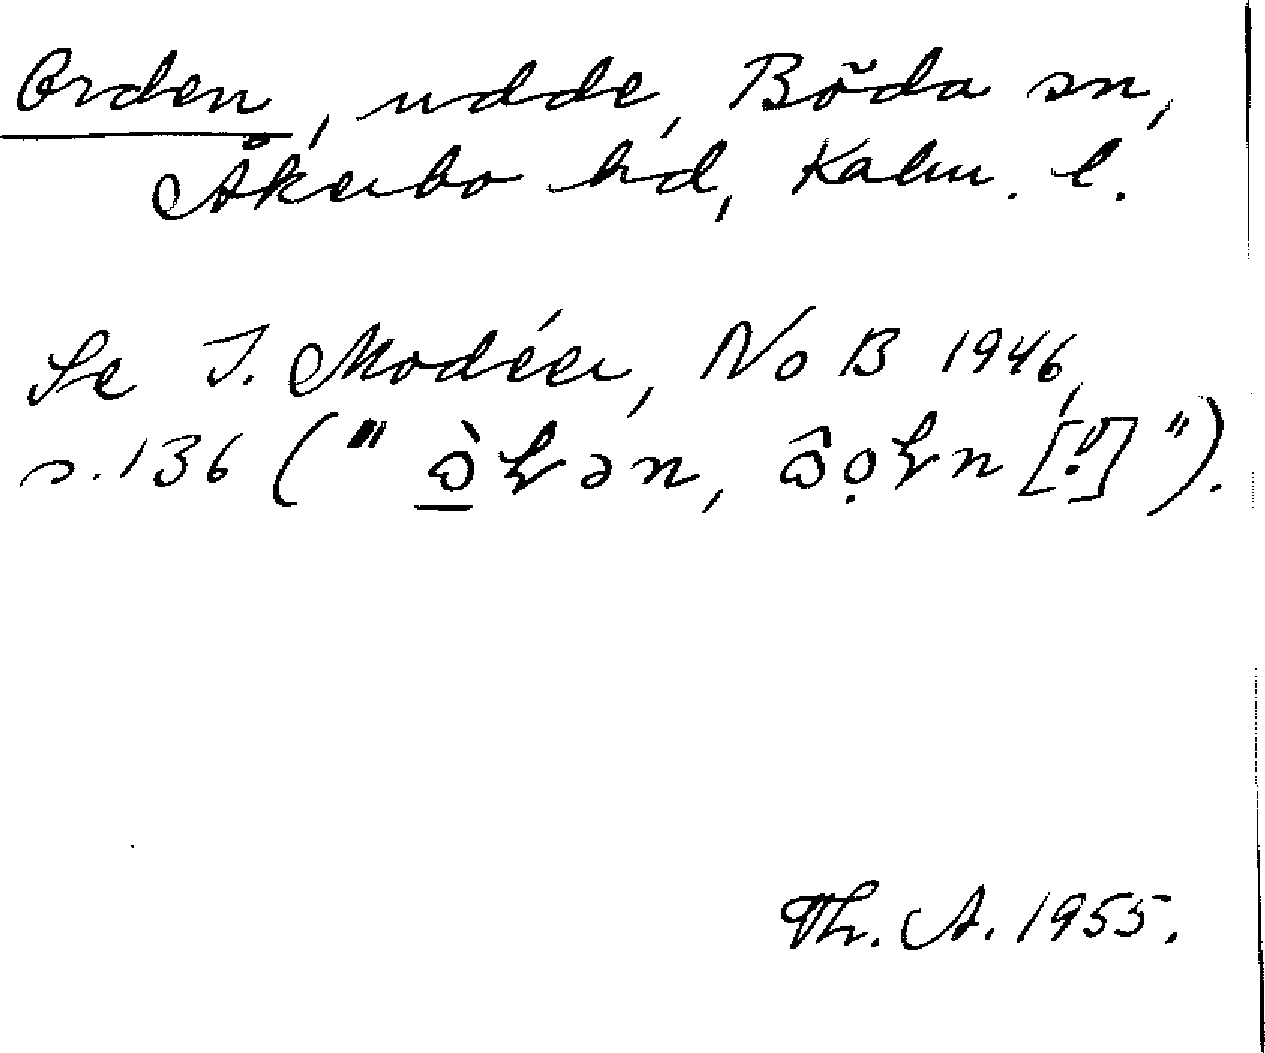 Orden, udde, Böda sn,
Åkerbo hd, Kalm. l.
Se I. Modéer, NoB 1946,
s. 136 ("
Th. A. 1955.